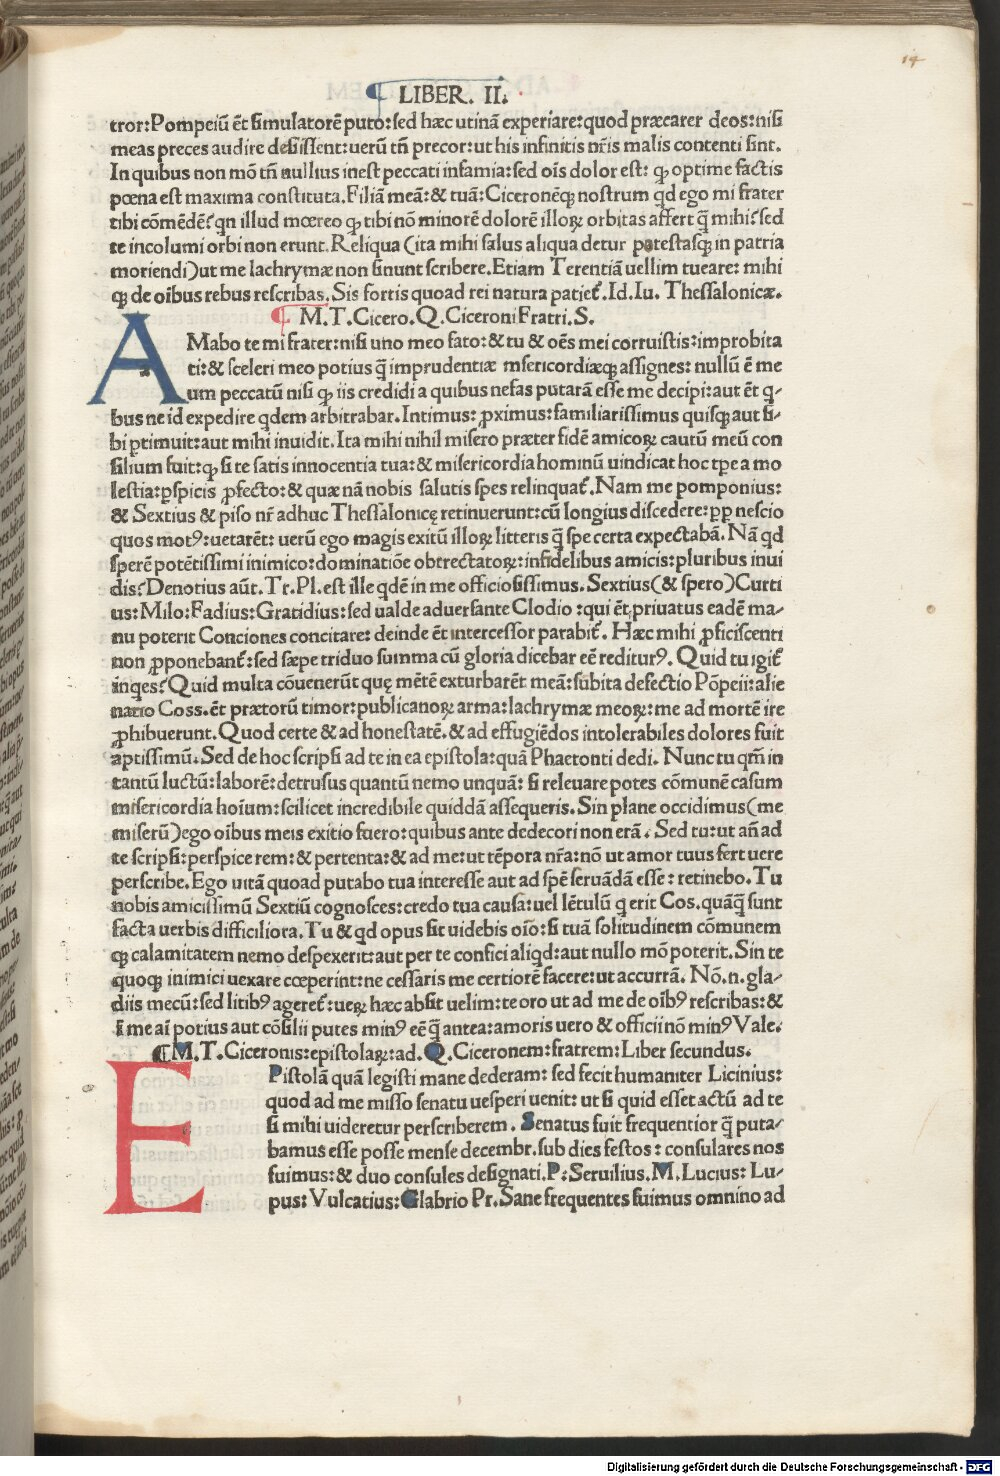 14
LIBER. II.
tror:Pompeiū ēt simulatorē puto:sed hæc utinā experiare:quod præcarer deos:nisi
meas preces audire desissent:uerū tñ precor:ut his infinitis nr̄is malis contenti sint.
In quibus non mō tñ nullius inest peccati infamia:sed oīs dolor est: ꝙ optime factis
pœna est maxima constituta.Filiā meā:& tuā:Ciceronēꝗ nostrum qd ego mi frater
tibi cōmēdē?qn illud mœreo ꝙ tibi nō minorē dolorē illoꝝ orbitas affert q̄ mihi?sed
te incolumi orbi non erunt.Reliqua (ita mihi salus aliqua detur potestasꝗ in patria
moriendi)ut me lachrymæ non sinunt scribere.Etiam Terentiā uellim tueare: mihi
ꝗ de oībus rebus rescribas.Sis fortis quoad rei natura patiet᷑.Id.Iu. Thessalonicæ.
M.T.Cicero.Q.Ciceroni Fratri.S.
AMabo te mi frater:nisi uno meo fato:& tu & oēs mei corruistis:improbita
ti:& sceleri meo potius q̄ imprudentiæ msericordiæꝗ assignes: nullū ē me
um peccatū nisi ꝙ iis credidi a quibus nefas putarā esse me decipi:aut ēt q-
bus ne id expedire qdem arbitrabar.Intimus:ꝓximus:familiarissimus quisꝗ aut si-
bi ꝑtimuit:aut mihi inuidit.Ita mihi nihil misero præter fidē amicoꝝ cautū meū con
silium fuit:ꝙ si te satis innocentia tua:& misericordia hominū uindicat hoc tꝑe a mo
lestia:ꝑspicis ꝓfecto:& quæ nā nobis salutis spes relinquat᷑.Nam me pomponius:
& Sextius & piso nr̄ adhuc Thessalonicę retinuerunt:cū longius discedere:ꝓp nescio
quos motꝰ:uetarēt: uerū ego magis exitū illoꝝ litteris q̄ spe certa expectabā. Nā qd
sperē potētissimi inimico:dominatiōe obtrectatoꝝ:infidelibus amicis:pluribus inui
dis?Denotius aūt.Tr.Pl.est ille qdē in me officiosissimus.Sextius(& spero)Curti
us:Milo:Fadius:Gratidius:sed ualde aduersante Clodio :qui ēt priuatus eadē ma-
nu poterit Conciones concitare: deinde ēt intercessor parabit᷑. Hæc mihi ꝓficiscenti
non ꝓponebant᷑:sed sæpe triduo summa cū gloria dicebar eē rediturꝰ. Quid tu igit᷑
inqes?Quid multa cōuenerūt quę mētē exturbarēt meā:sūbita defectio Pōpeii:alie
natio Coss.ēt prætorū timor:publicanoꝝ arma:lachrymæ meoꝝ:me ad mortē ire
ꝓhibuerunt.Quod certe & ad honestatē.& ad effugiēdos intolerabiles dolores fuit
aptissimū.Sed de hoc scripsi ad te in ea epistola:quā Phaetonti dedi. Nunc tu qm̄ in
tantū luctū:laborē:detrusus quantū nemo unquā: si releuare potes cōmunē casum
misericordia hoīum:scilicet incredibile quiddā assequeris. Sin plane occidimus(me
miserū)ego oībus meis exitio fuero:quibus ante dedecori non erā. Sed tu:ut añ ad
te scripsi:perspice rem:& pertenta:& ad me:ut tēpora nr̄a:nō ut amor tuus fert uere
perscribe.Ego uitā quoad putabo tua interesse aut ad spē seruādā esse: retinebo.Tu
nobis amicissimū Sextiū cognosces:credo tua causa:uel lētulū q erit Cos.quāq̄ sunt
facta uerbis difficiliora.Tu & qd opus sit uidebis oīo:si tuā solitudinem cōmunem
ꝗ calamitatem nemo despexerit:aut per te confici aliqd:aut nullo mō poterit.Sin te
quoꝗ inimici uexare cœperint:ne cessaris me certiorē facere:ut accurrā. Nō.n.gla-
diis mecū:sed litibꝰ ageret᷑:ueꝝ hæc absit uelim:te oro ut ad me de oībꝰ rescribas:&
si me aī potius aut cōsilii putes minꝰ eē q̄ antea:amoris uero & officii nō minꝰ Vale.
M.T.Ciceronis:epistolaꝝ:ad.Q.Ciceronem:fratrem:Liber secundus.
EPistolā quā legisti mane dederam: sed fecit humaniter Licinius:
quod ad me misso senatu uesperi uenit: ut si quid esset actū ad te
si mihi uideretur perscriberem . Senatus fuit frequentior q̄ puta-
bamus esse posse mense decembr.sub dies festos: consulares nos
fuimus:& duo consules designati.P:Seruilius.M.Lucius: Lu-
pus: Vulcatius:Glabrio Pr.Sane frequentes fuimus omnino ad
Digitalisierung gefördert durch die Deutsche Forschungsgemeinschaft - DFG